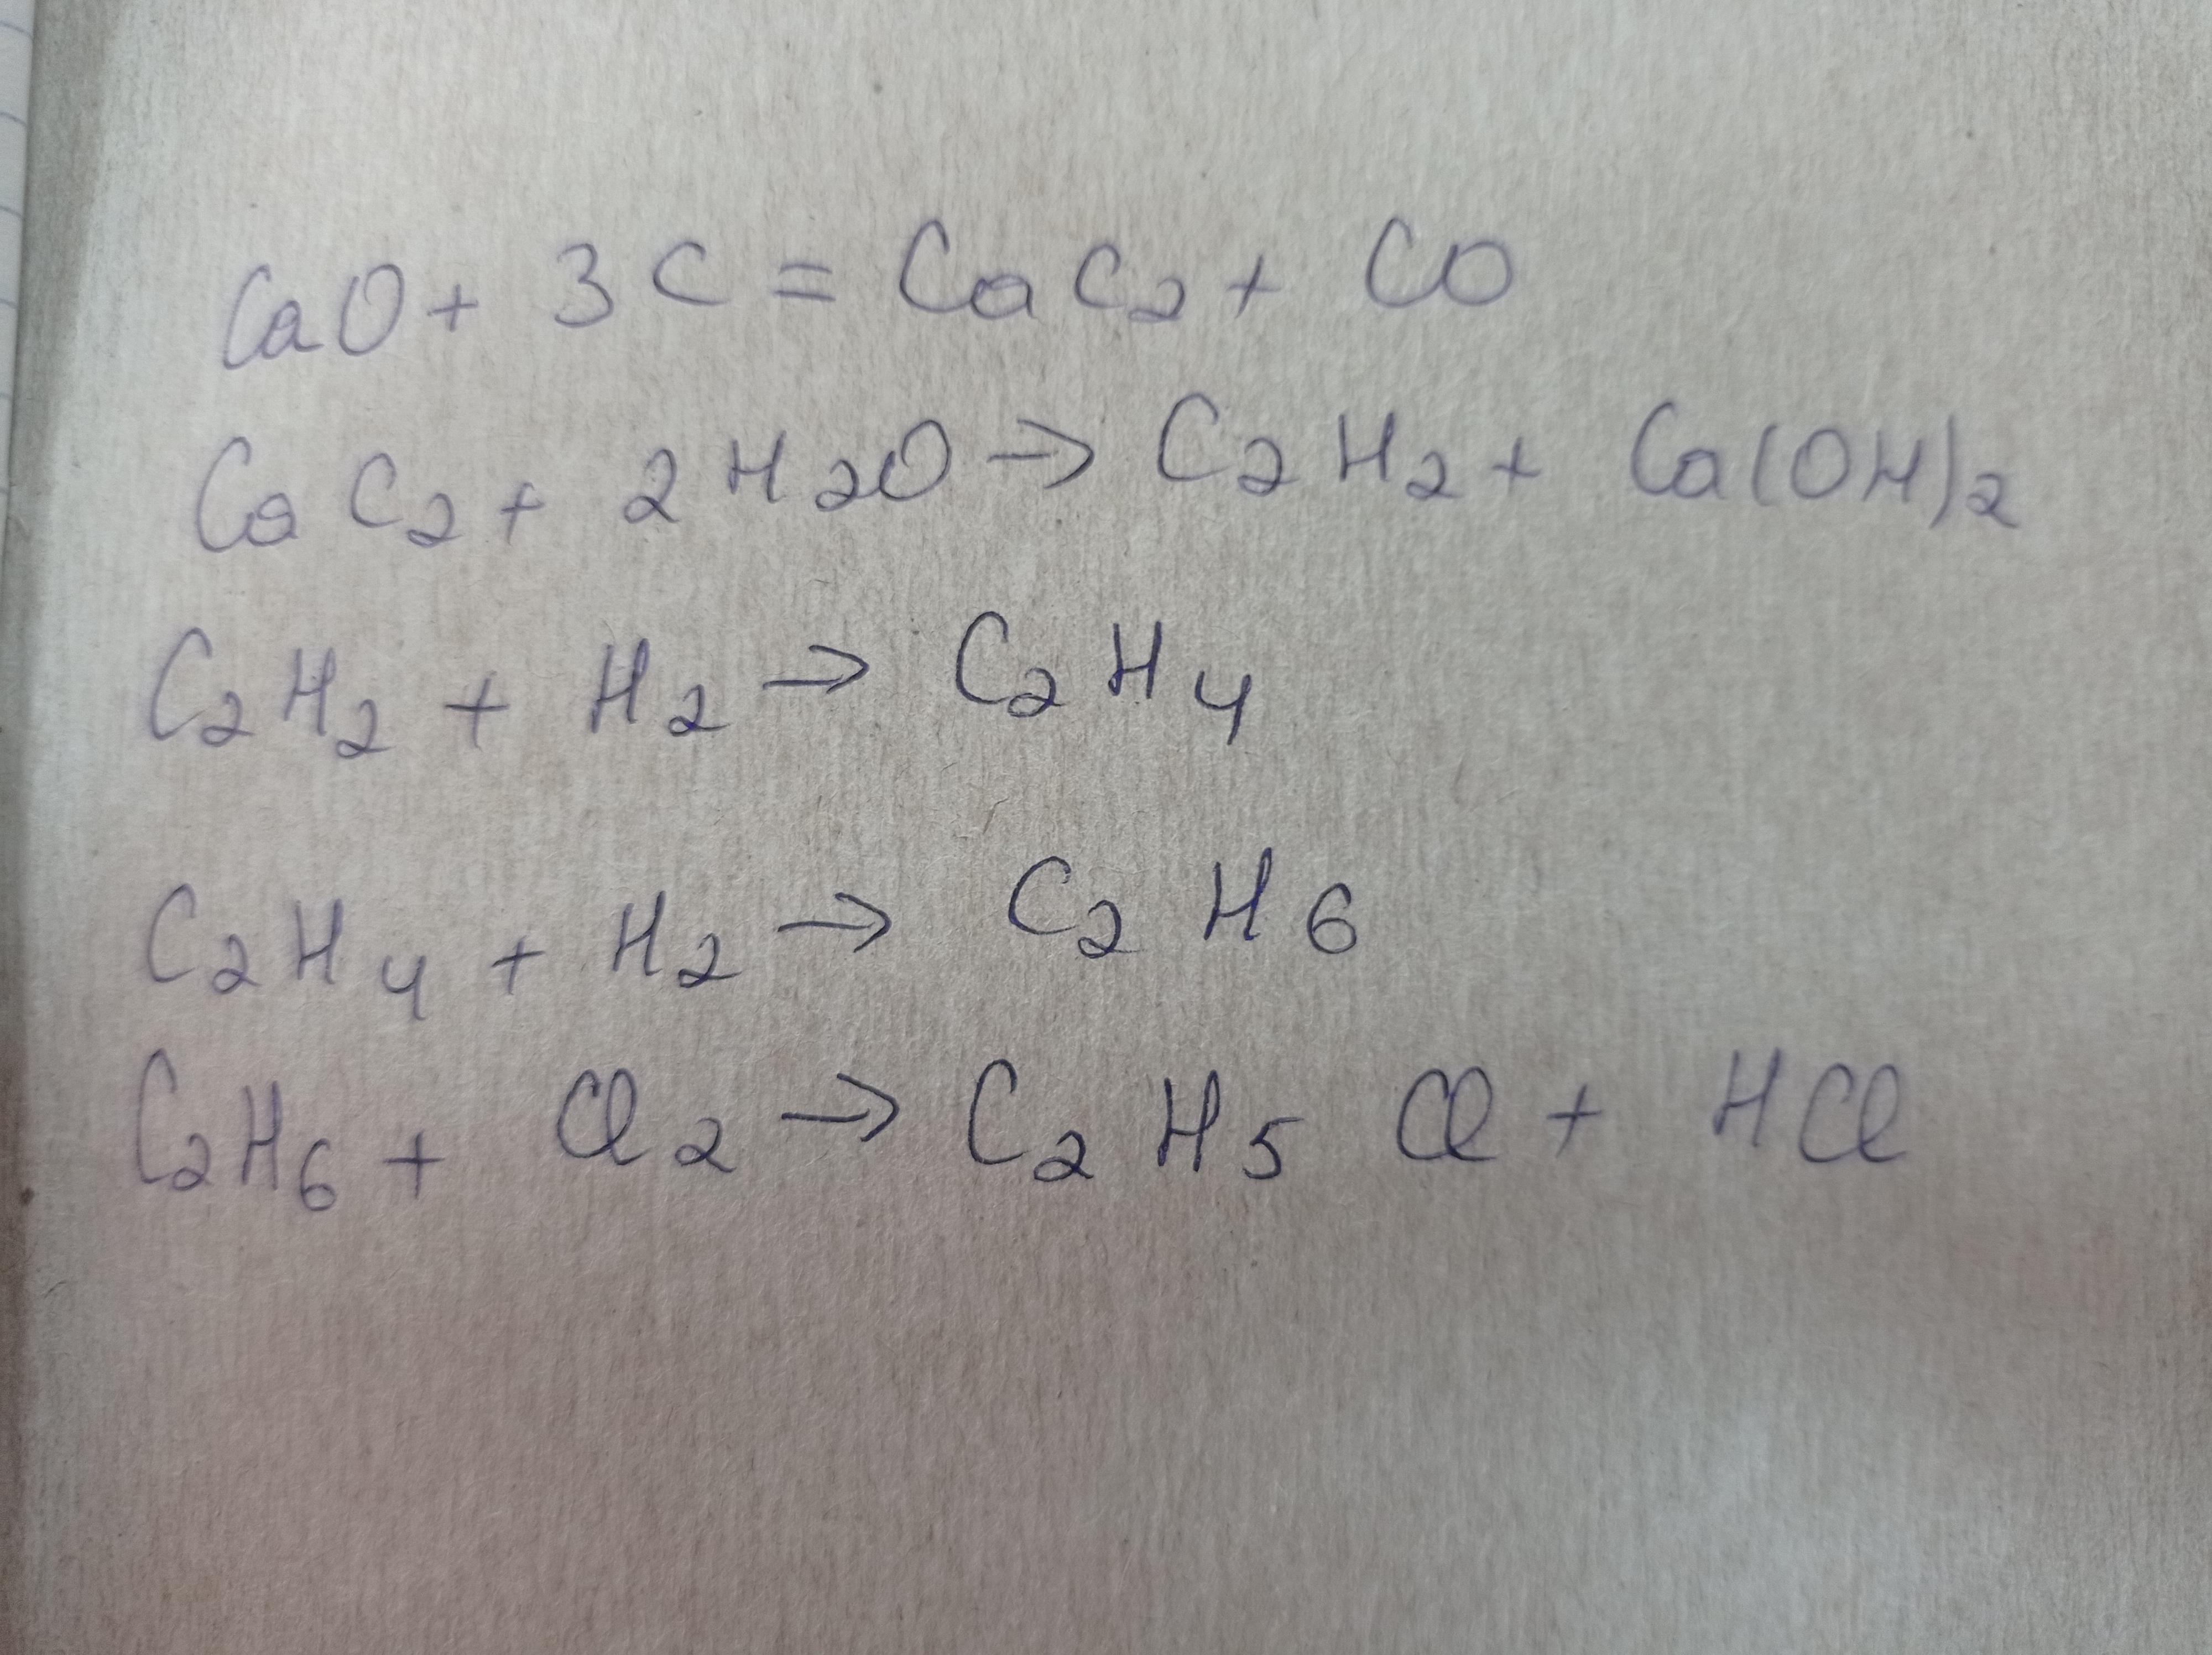 CaO + 3C = CaC2 + CO
CaC2 + 2H2O → C2H2 + Ca(OH)2
C2H2 + H2 → C2H4
C2H4 + H2 → C2H6
C2H6 + Cl2 → C2H5Cl + HCl